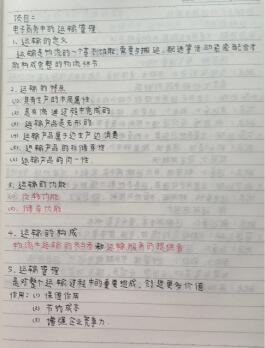 项目二
电子商务中的运输管理
1、运输的定义
运输是物流的一个重要功能,需要与搬运、配送等活动紧密配合才
能构成完整的物流环节
2、运输的特点
(1) 具有生产的本质属性
(2) 是在流通过程中完成的
(3) 运输产品是无形的
(4) 运输产品属于边生产边消费
(5) 运输产品的非储存性
(6) 运输产品的同一性
3、运输的功能
(1) 位移功能
(2) 储存功能
4、运输的构成
物流中运输的和运输服务的提供者
5、运输管理
是对整个运输过程中的重要组成,创造更多价值
作用:(1) 保值作用
(2) 节约成本
(3) 增强企业竞争力